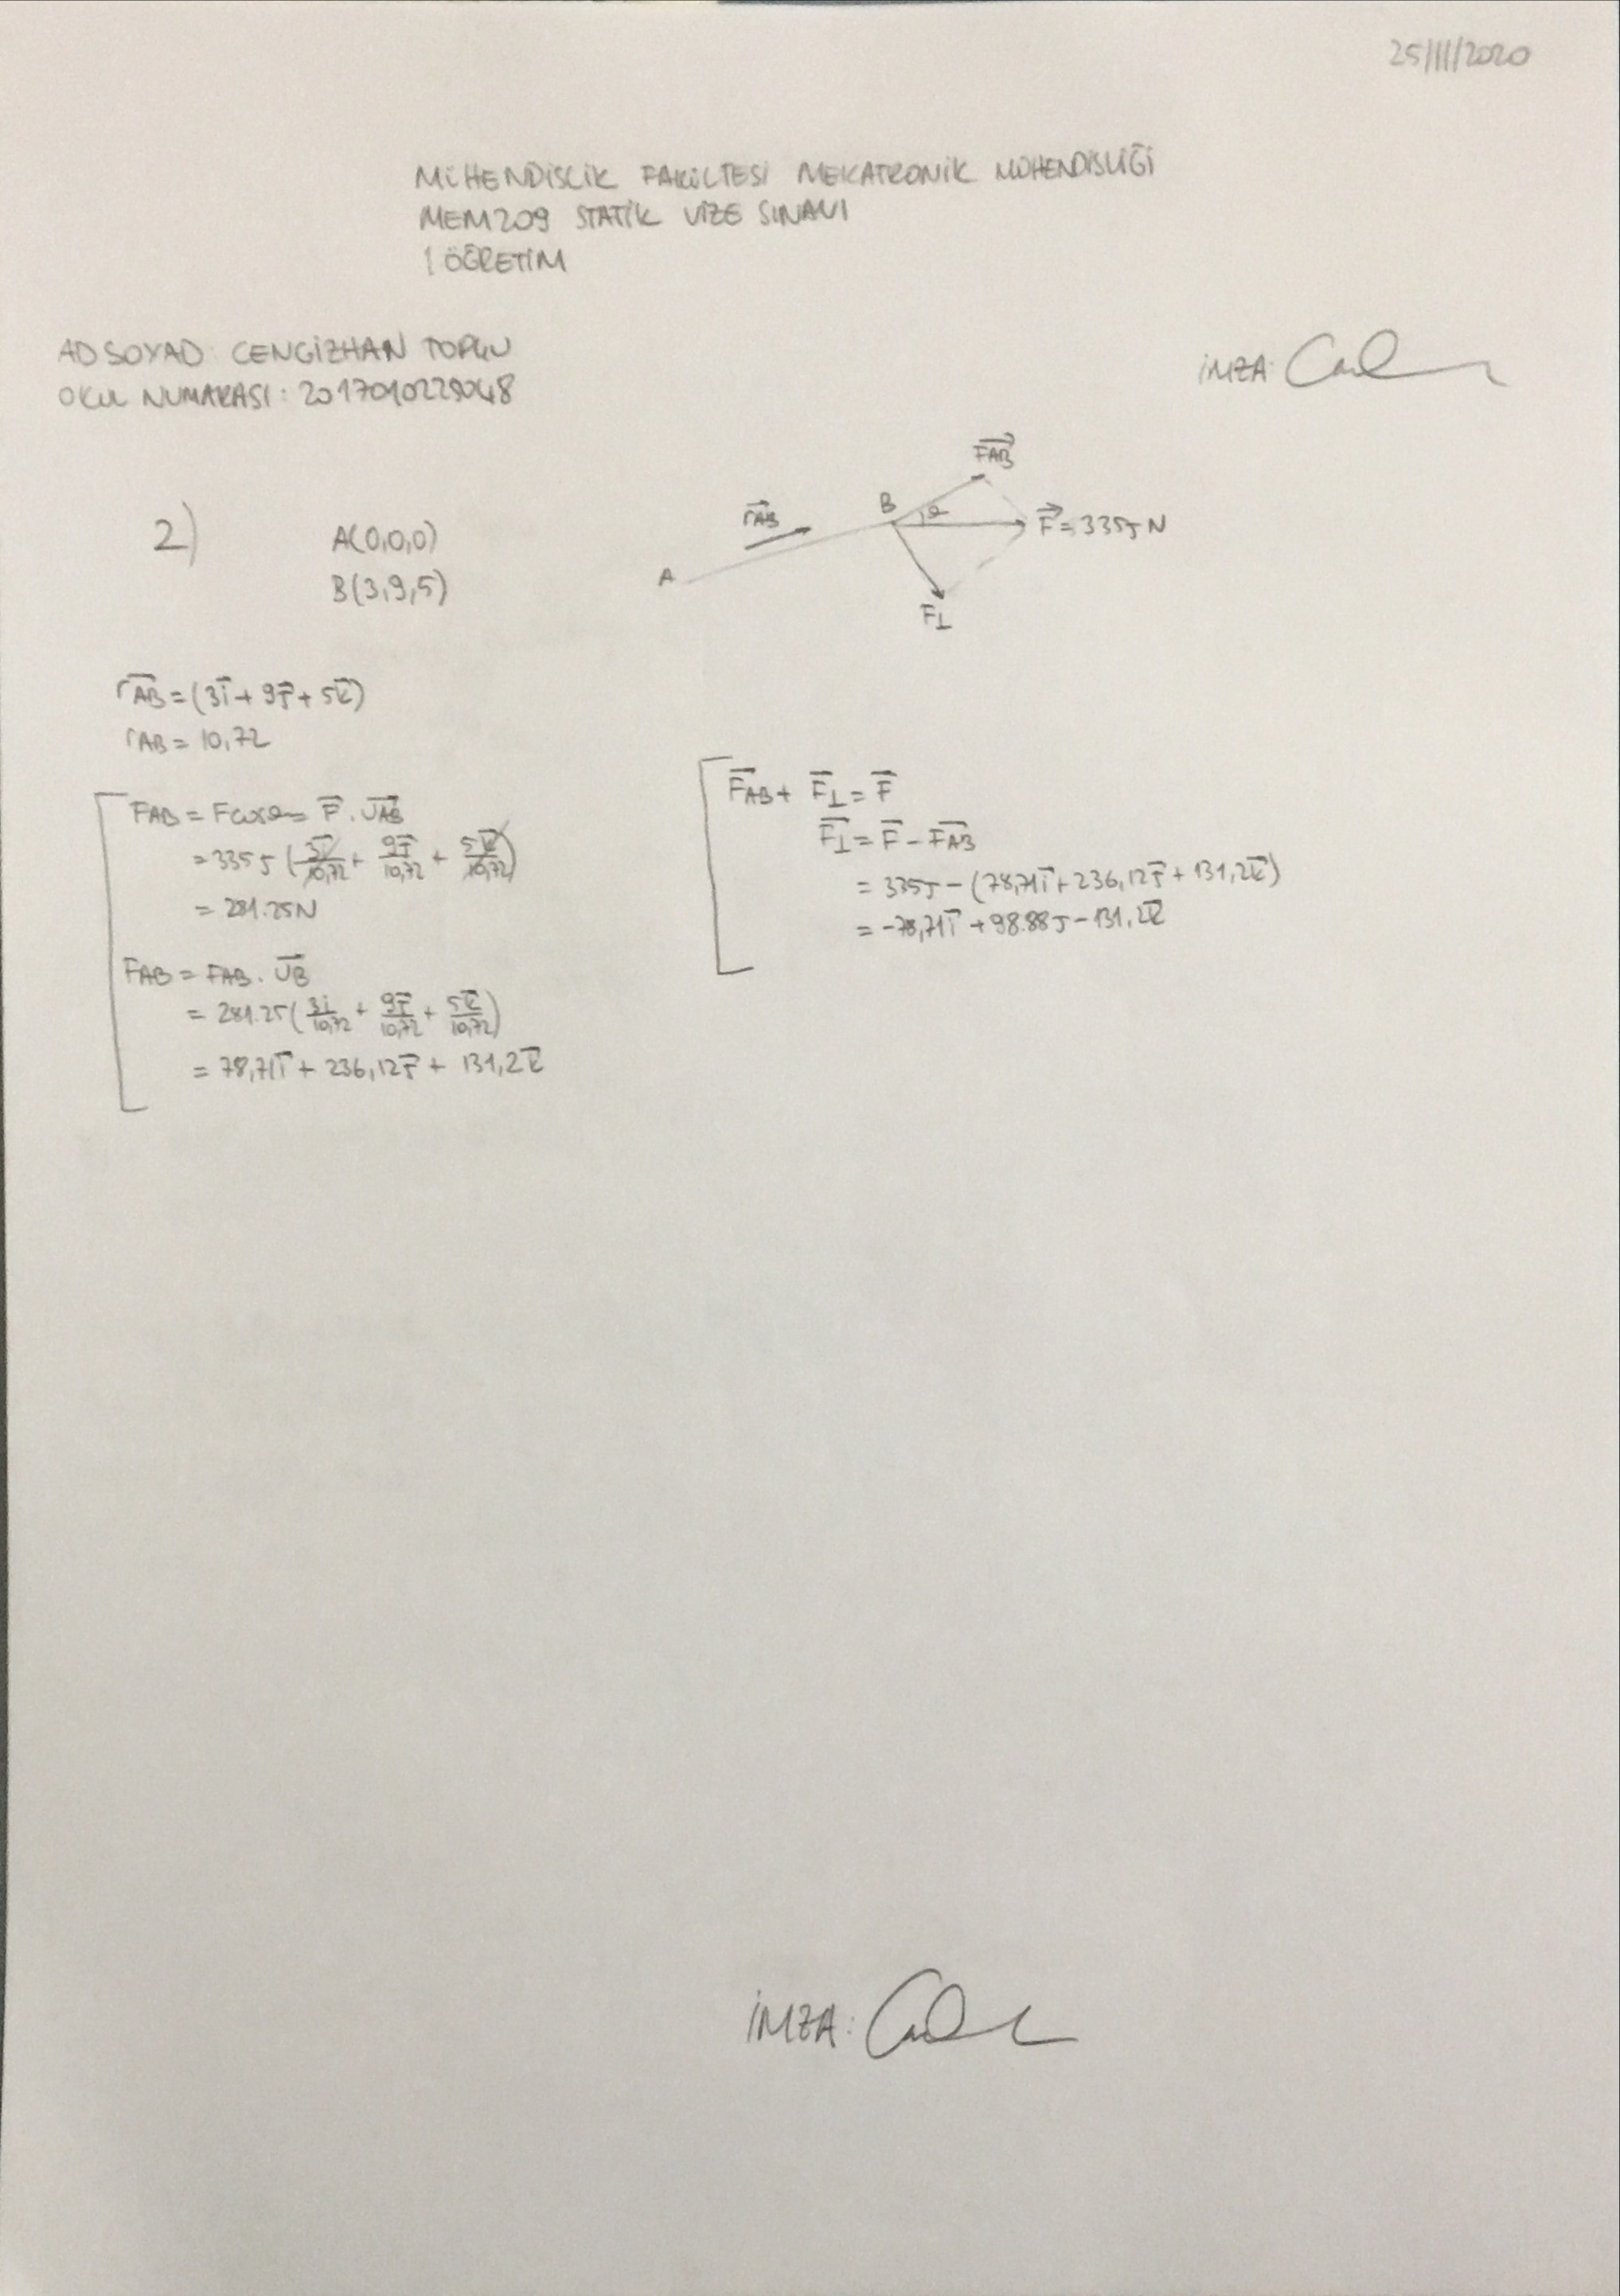 25/11/2020
MÜHENDİSLİK FAKÜLTESİ MEKATRONİK MÜHENDİSLİĞİ
MEM209 STATİK VİZE SINAVI
1 ÖĞRETİM
AD SOYAD: CENGİZHAN
OKUL NUMARASI: 2017010229048
İMZA:
2)
A(0,0,0)
B(3,9,5)
A
rAB
B
FAB
F = 335j N
F⊥
rAB = (3i + 9j + 5k)
rAB = 10,72
FAB = Fcosθ = F . UAB
= 335 j (3i/10,72 + 9j/10,72 + 5k/10,72)
= 281.25N
FAB = FAB . UB
= 281.25 (3i/10,72 + 9j/10,72 + 5k/10,72)
= 78,71i + 236,12j + 131,2k
FAB + F⊥ = F
F⊥ = F - FAB
= 335j - (78,71i + 236,12j + 131,2k)
= -78,71i + 98.88j - 131,2k
İMZA: